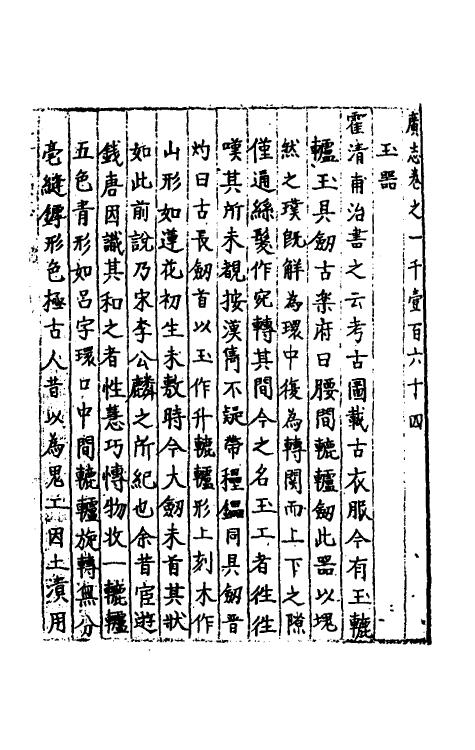 廣志卷之一千壹百六十四
玉器
霍清甫治書之云考古圖載古衣服令有玉轆
轤玉具劒古樂府曰腰間轆轤劒此器以塊
然之璞既解為環中復為轉関而上下之隙
僅通絲髮作宛轉其間今之名玉工者往往
嘆其所未覩按漢雋不疑帶櫑具劒晋
灼曰古長劒首以玉作升轆轤形上刻木作
山形如蓮花初生未敷時今大劒木首其狀
如此前說乃宋李公麟之所紀也余昔宦逰
錢唐因識其和之者性慧巧愽物收一轆轤
五色青形如吕字環口中間轆轤旋轉無分
毫縫鏬形色極古人昔以為鬼工因土漬用